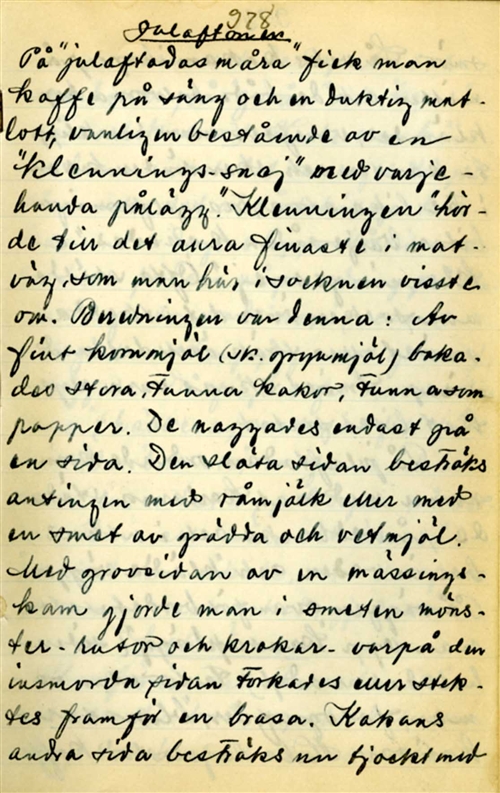 928
Julaftonen
På "julaftadas måra" fick man
kaffe på säng och en duktig mat-
lott, vanligen bestående av en
"klennings-snaj" med varje-
handa pålägg. "Klenningen" hör-
de till det allra finaste i mat-
väg, som man här i socknen visste
om. Beredningen var denna: Av
fint kornmjöl (sk. grynmjöl) baka-
des stora, tunna kakor, tunna som
papper. De naggades endast på
en sida. Den släta sidan beströks
antingen med råmjölk eller med
en smet av grädda och vetmjöl.
Med grovsidan av en mässings-
kam gjorde man i smeten möns-
ter - rutor och krokar - varpå den
insmorda sidan torkades eller stek-
tes framför en brasa. Kakans
andra sida beströks nu tjockt med